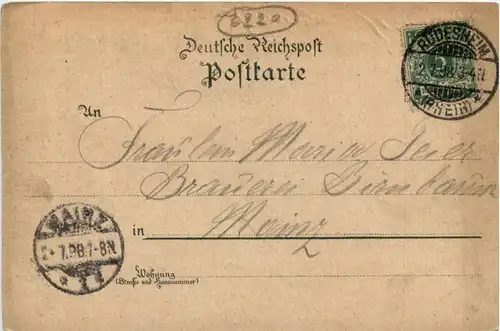 6220
Deutsche Reichspost
Postkarte
RÜDESHEIM
2.7.98.3-4N.
(RHEIN)
An
Fräulein Maria
Brauerei Birnbaum
in Mainz
MAINZ
2.7.98.7-8N.
Wohnung
(Straße und Hausnummer)